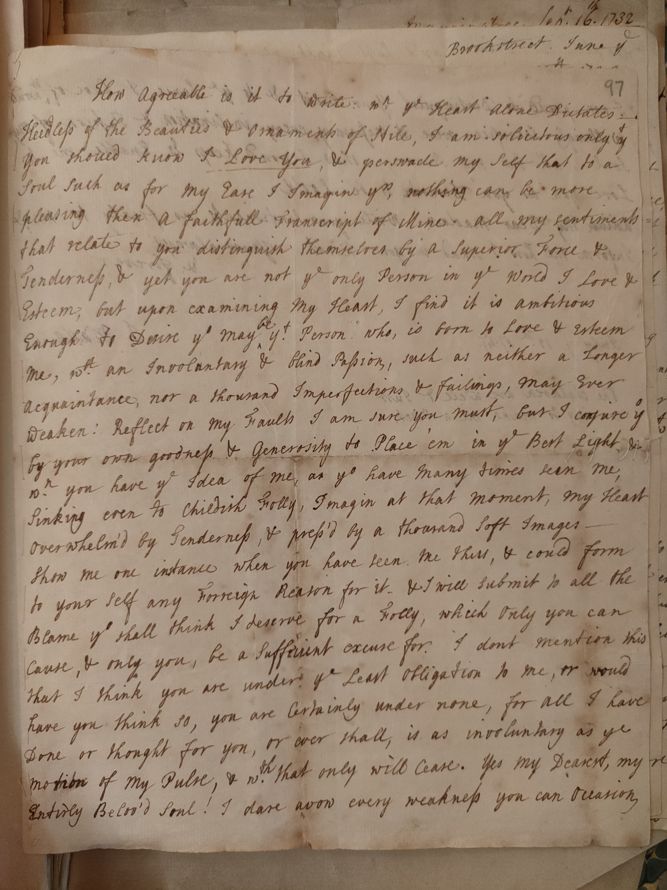 Sepr. 16th 1732
Brookstreet June ye
97
How Agreeable is it to write wn ye Heart alone Dictates.
Heidless of the Beauties & Ornaments of Stile, I am solicitous only yt
you shoued know I Love You, & perswade my Self that to a
Soul Such as for my Ease I Imagin yrs, nothing can be more
pleasing then a faithfull Transcript of Mine. all my sentiments
that relate to you distinguish themselves by a Superior Force &
Tenderness, & yet you are not ye only Person in ye World I Love &
Esteem, but upon examining My Heart, I find it is ambitious
Enough to Desire yo may be yt Person who, is born to Love & Esteem
Me, wth an Involuntary & blind Passion, such as neither a Longer
Acquaintance, nor a thousand Imperfections & failings, May Ever
Weaken! Reflect on my Faults I am sure you Must, but I conjure yo
by your own goodness & Generosity to Place 'em in ye Best Light, &
wn you have ye Idea of me, as yo have Many times seen me,
Sinking even to Childish Folly, Imagin at that Moment, My Heart
Overwhelm'd by Tenderness, & press'd by a thousand Soft Images—
Show me one instance when you have seen me thus, & could form
to your Self any Forreign Reason for it. & I will Submit to all the
Blame yo shall think I deserve for a Folly, which Only you can
Cause, & only you, be a Sufficient excuse for. I dont mention this
that I think you are under ye Least Obligation to me, or would
have you think so, you are Certainly under none, for all I have
Done or thought for you, or ever shall, is as involuntary as ye
motion of My Pulse, & wth that only will Cease. Yes My Dearest, my
Entirly Belov'd Soul! I dare avow every weakness you can Occasion,